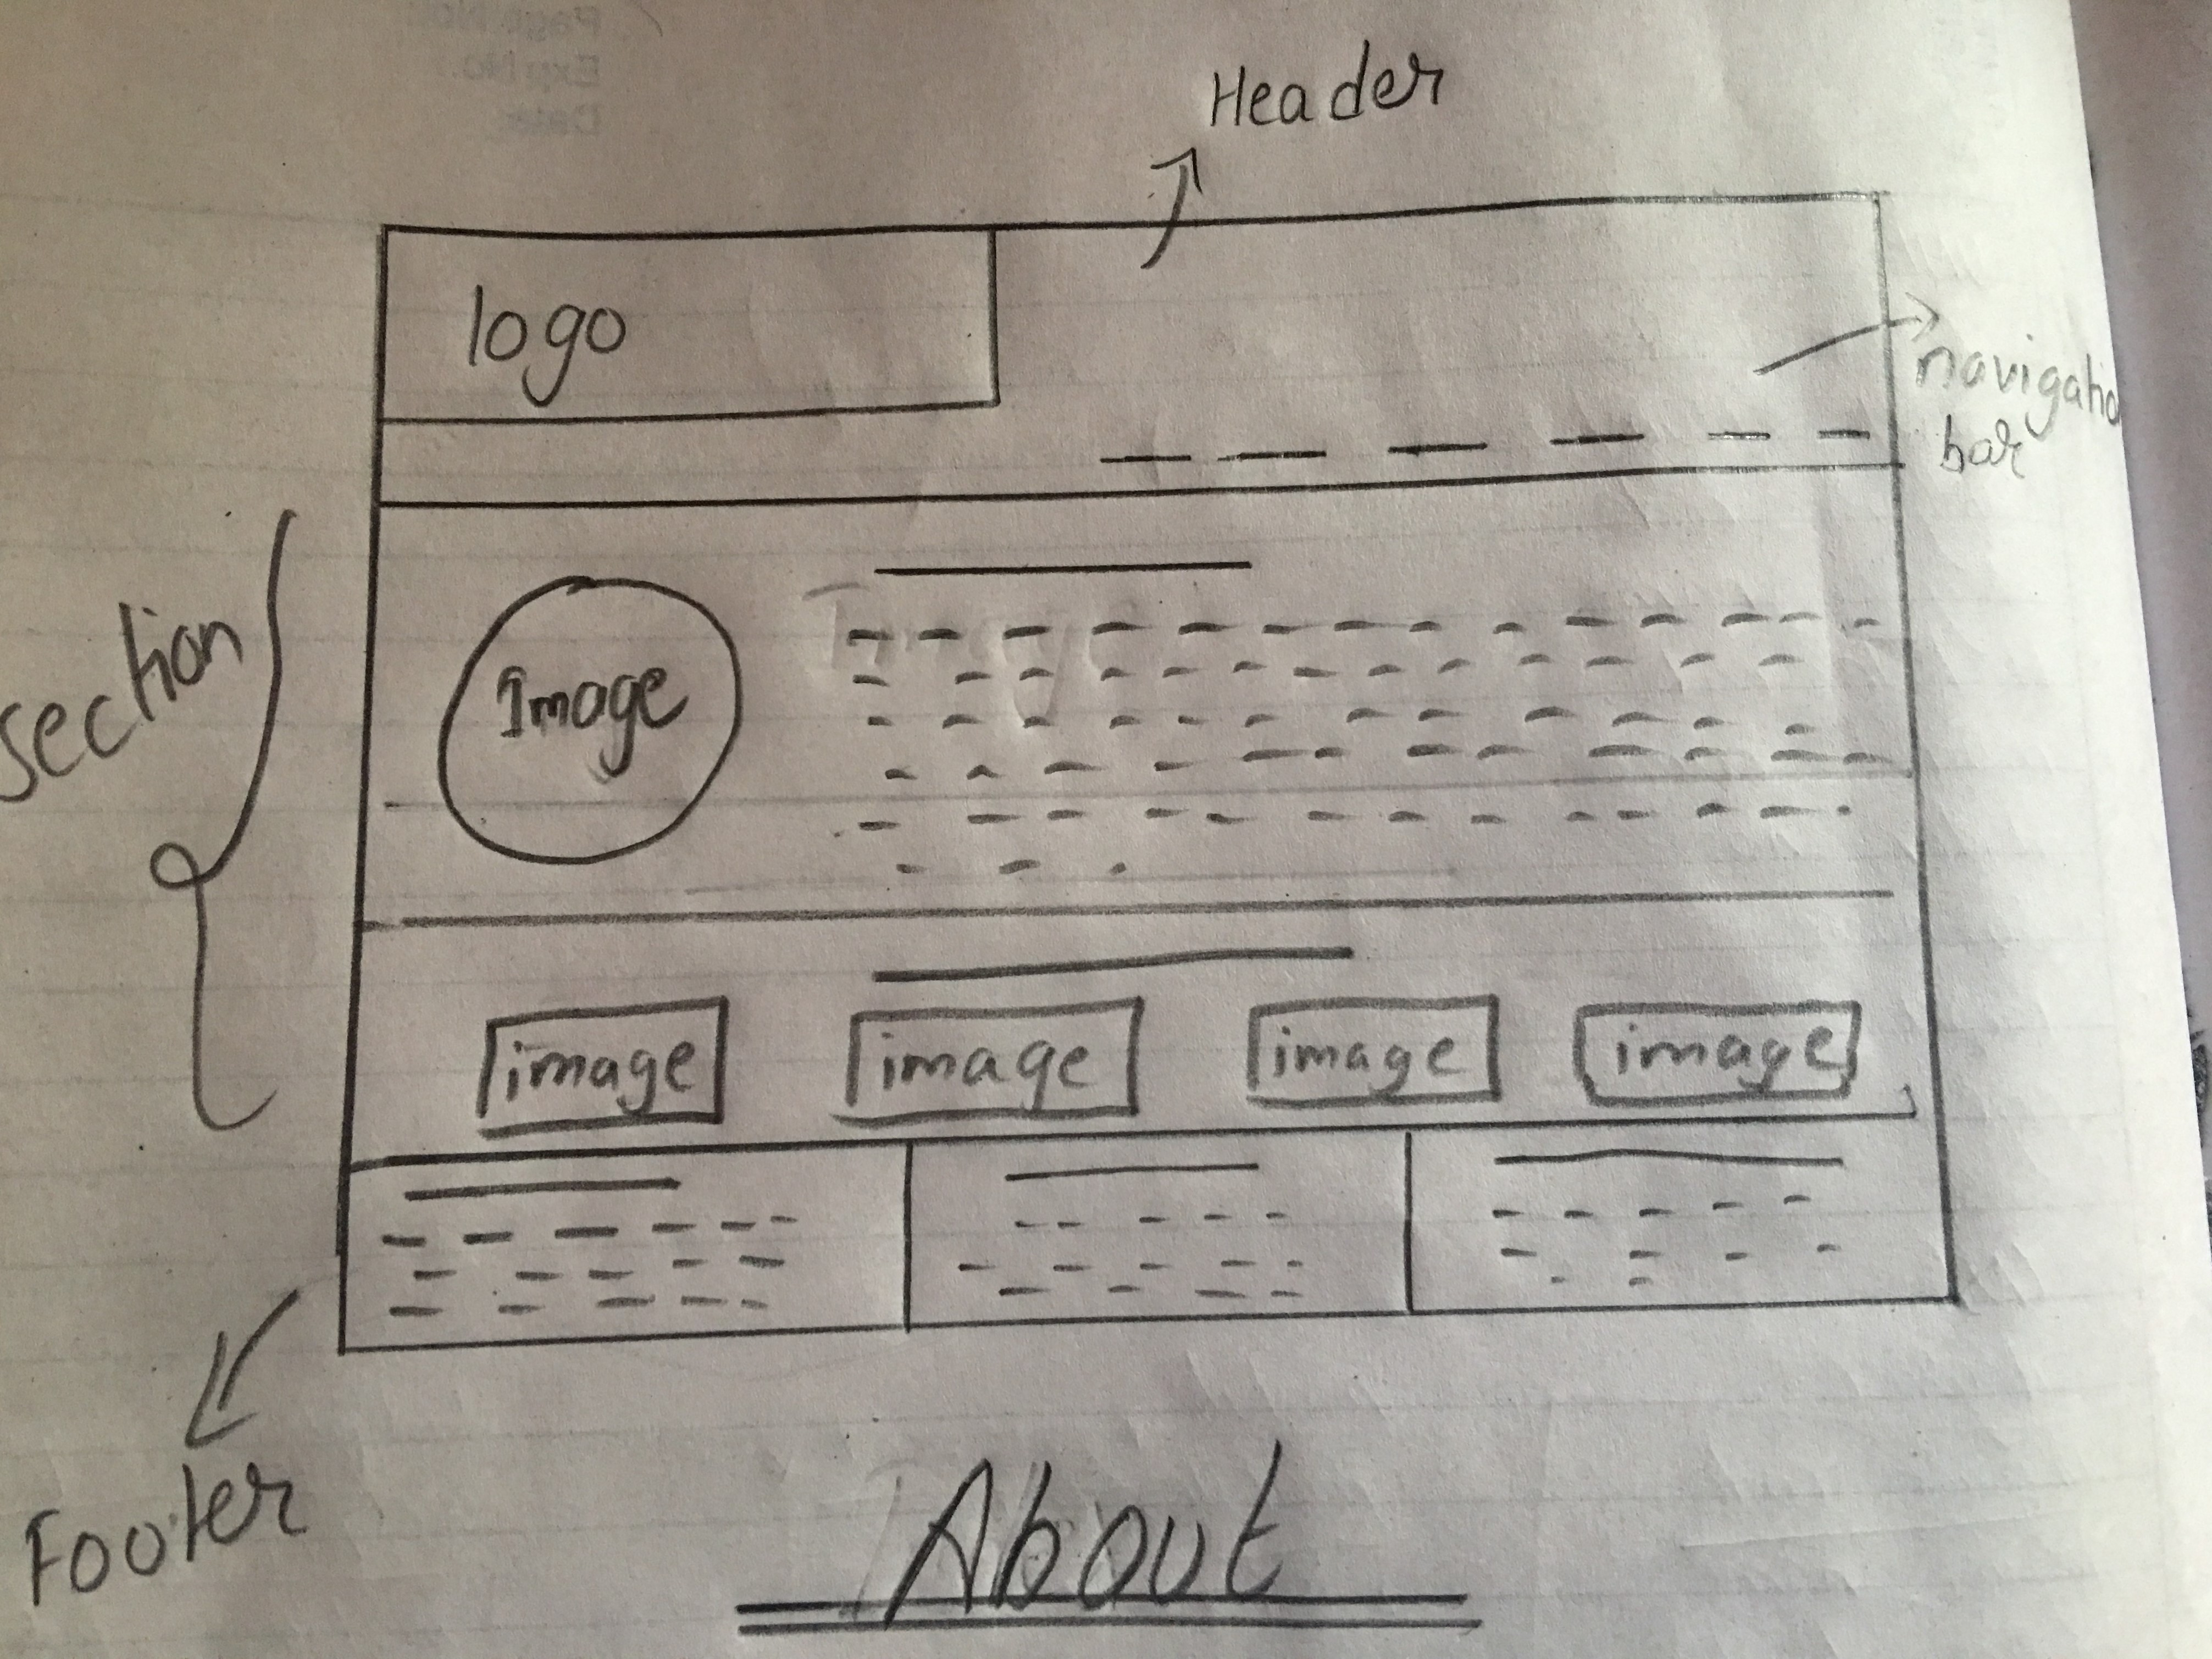 Page No.
Exp No.
Date:
Header
logo
navigatio
bar
section
Image
image image image image
Footer
About